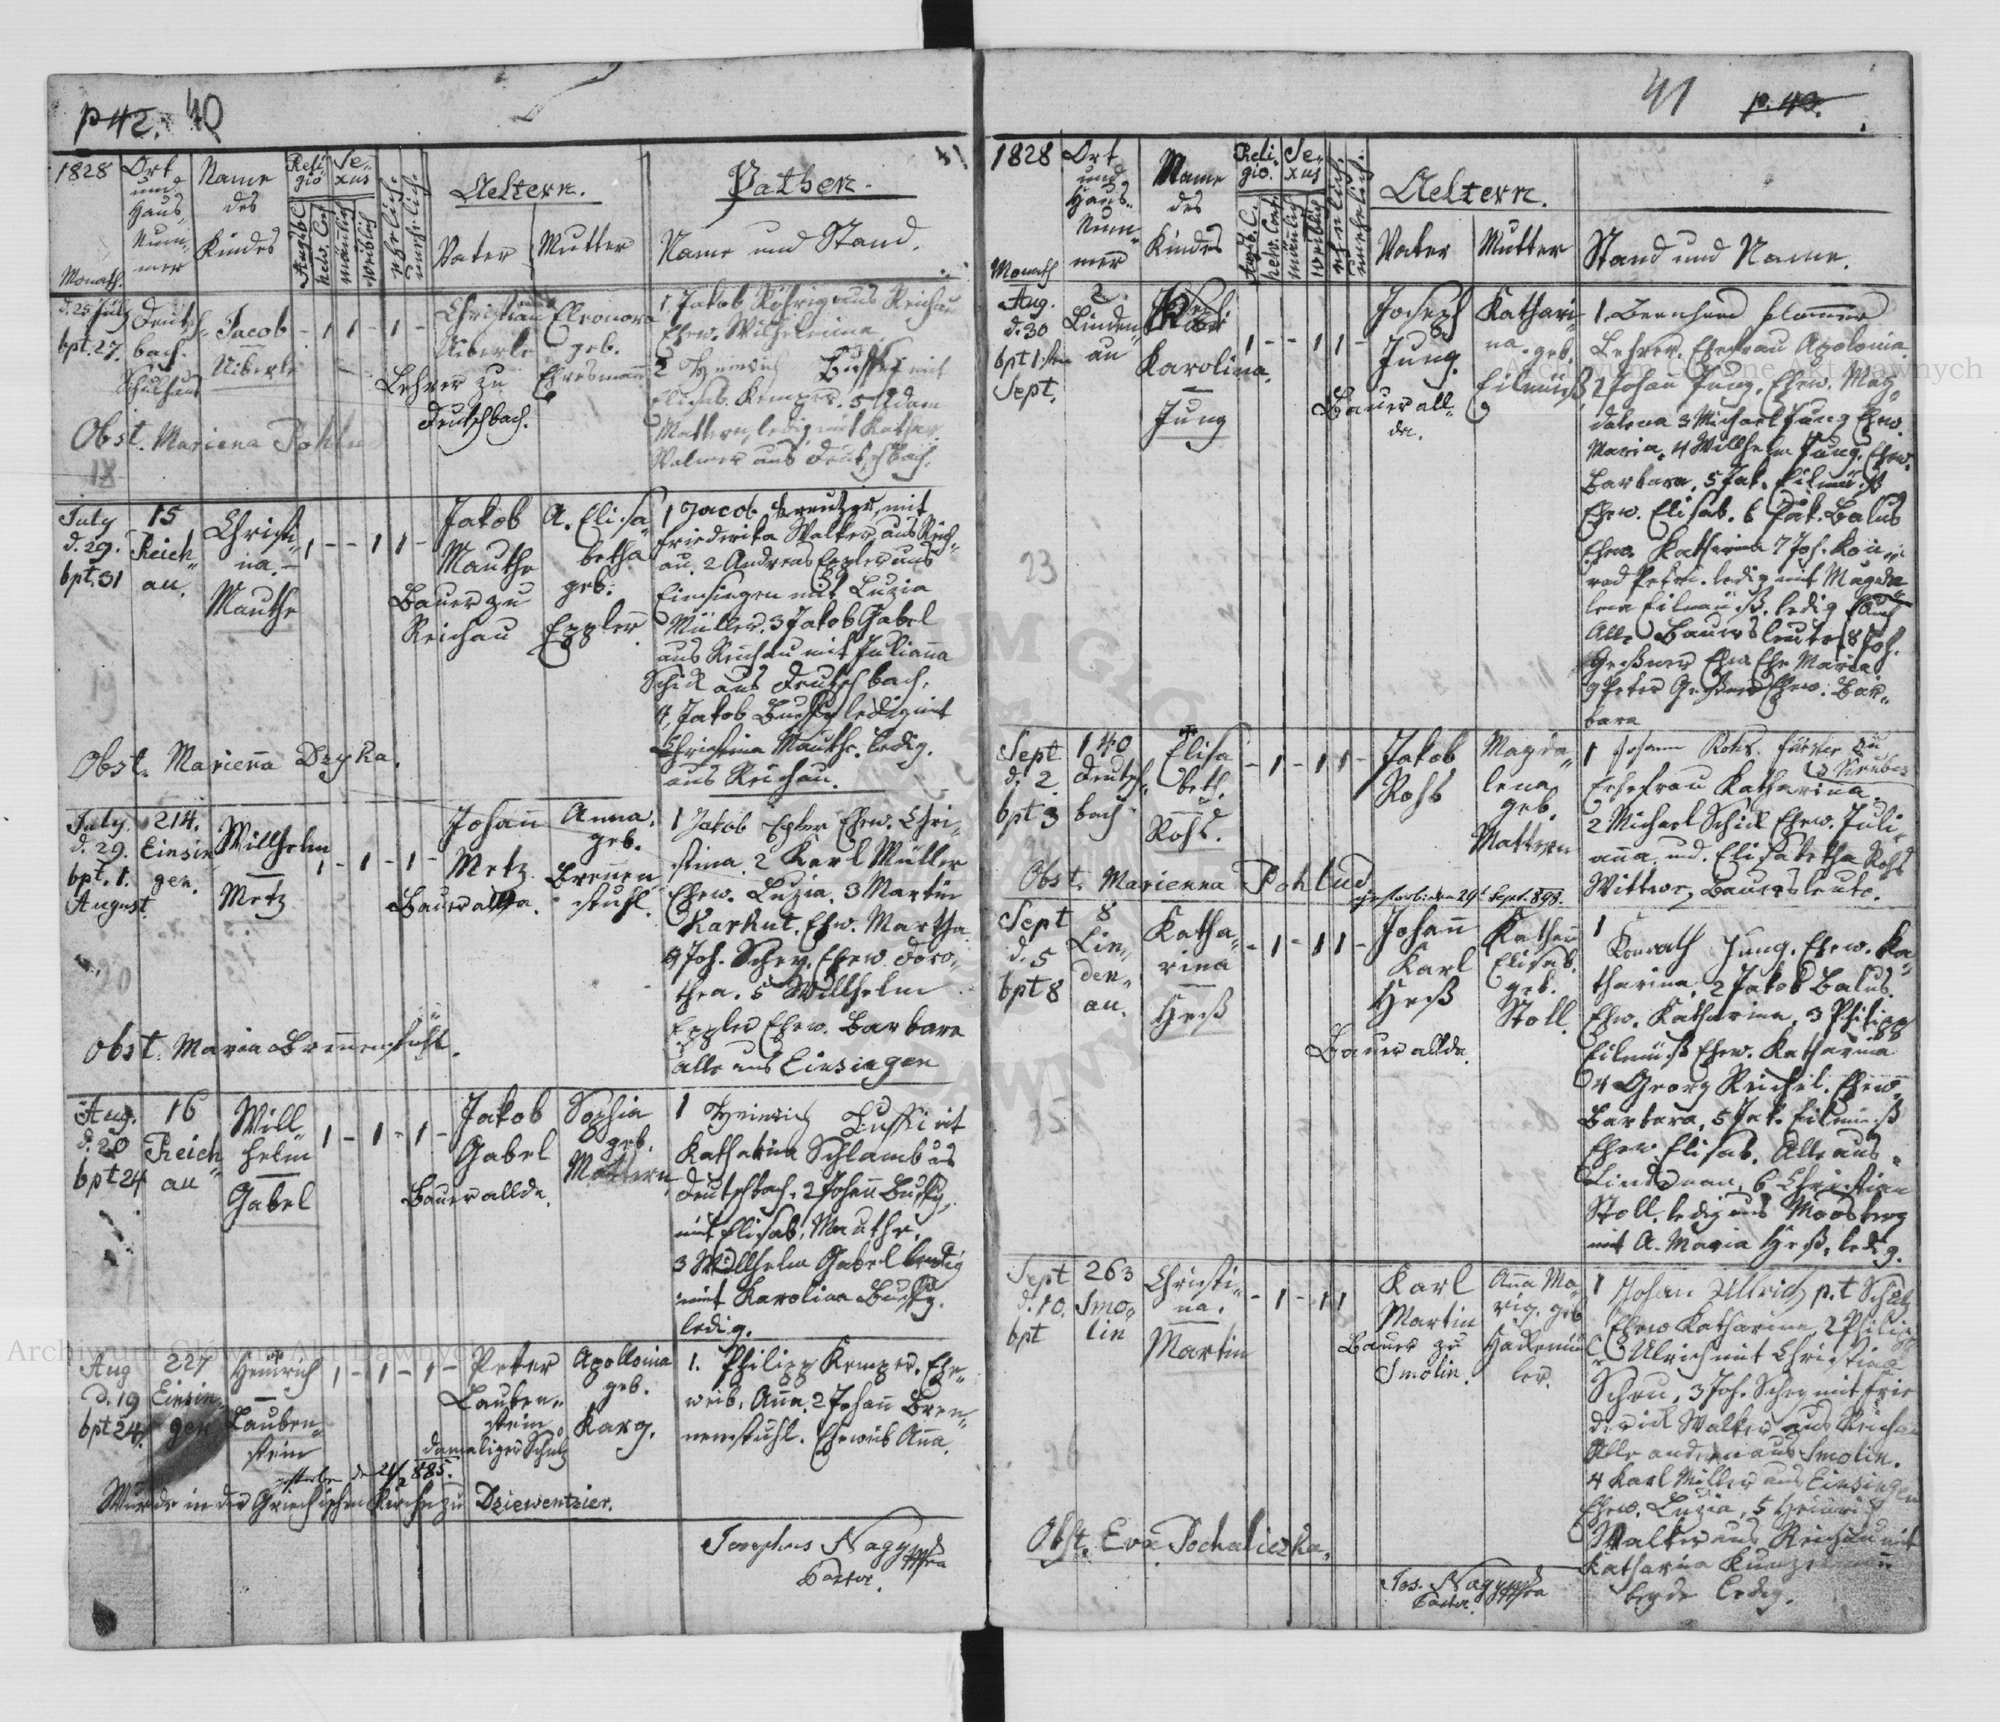 p 42. 40
1828
Ort und Haus Num- mer
Name des Kindes
Reli gio
Se- xus
Augsb. C.
helv. Con
mänlich
weiblich
ehelich.
unehelich.
Aeltern.
Pathen.
Monath.
Vater
Mutter
Name und Stand.
d. 25 July
bpt. 27.
Deutsch-
bach.
Schulhaus
Jacob
Christian
Lehrer zu
Deutschbach.
Eleonora
geb.
Ehresmann
1 Jakob Röhrig aus Reichau
Ehew. Wilhelmina
2 Heinrich Buffy mit
Elisab. Kemper. 3 Adam
Mattern, ledig mit Kathar.
aus Deutschbach.
Obst. Mariena Pohlud
18
July
d. 29.
bpt. 31
15
Reich-
au.
Christi-
na.
Mauthe
1 - - 1 1 -
Jakob
Mauthe
Bauer zu
Reichau
A. Elisa-
betha
geb.
Eppler
1 Jacob Kreutzer, mit
Friederika Walker, aus Reich-
au. 2 Andreas Eppler aus
Einsingen mit Luzia
Müller. 3 Jakob Gabel
aus Reichau mit Julianna
Schick aus Deutschbach.
4, Jakob Buffy ledig mit
Christina Mauthe. ledig.
aus Reichau.
Obst. Marienna Dzyka.
July.
d. 29.
bpt. 1.
August
214.
Einsin-
gen.
Willhelm
Metz
1 - 1 - 1 -
Johann
Metz
Bauer allda.
Anna.
geb.
Brennen
stuhl.
1 Jakob Epler Ehew. Chri-
stina. 2 Karl Müller
Ehew. Luzia. 3 Martin
Karkut. Ehw. Martha
4 Joh. Schey. Ehew. Doro-
thea. 5 Willhelm
Eppler Ehew. Barbara
alle aus Einsingen
20
Obst. Maria Brennenstuhl.
Aug.
d. 20
bpt 24
16
Reich
au
Will
helm
Gabel
1 - 1 - 1 -
Jakob
Gabel
Bauer allda.
Sophia
geb.
Mattern
1 Heinrich Buffi mit
Katharina Schlamb aus
Deutschbach. 2 Johann Buffy,
mit Elisab. Mauthe.
3 Willhelm Gabel ledig
mit Karolina Buffy.
ledig.
Aug
d. 19
bpt 24.
227
Einsin-
gen
Heinrich
Lauben-
stein
1 - 1 - 1 -
Peter
Lauben-
stein
damaliger Schulz
Apollonia
geb.
Karg.
1. Philipp Kemper. Ehe-
weib, Anna. 2 Johann Bren-
nenstuhl. Eheweib Anna.
Wurde in der Griechischen Kirche zu Dziewentzier.
Josephus Nagy
Pastor.
41 p. 43.
1828
Ort und Haus- Num- mer
Name des Kindes
Reli- gio.
Se- xus
Augsb. C.
helv. Conf
mänlich
weiblich
ehelich.
unehelich.
Aeltern.
Monath
Vater
Mutter
Stand und Name.
Aug.
d. 30
bpt 1ten
Sept.
2.
Linden-
au
Karolina.
Jung
1 - - 1 1 -
Joseph
Jung.
Bauer all-
da.
Kathari-
na. geb.
Eilmüß
1. Bernhard
Lehrer. Ehefrau Apolonia.
2 Johan Jung, Ehew. Mag-
dalena 3 Michael Jung Ehew.
Maria. 4 Willhelm Jung. Ehew.
Barbara, 5 Jak. Eilmüß
Ehew. Elisab. 6 Jak. Balus
Ehew. Katharina 7 Joh. Kon-
rad Petri. ledig mit Magda-
lena Eilmüß. ledig
Alle Bauersleute 8 Joh.
Geßner Ehew Maria
9 Peter Geßner Ehew. Bar-
bara
23
Sept
d. 2.
bpt 3
140
Deutsch-
bach
Elisa
beth.
Rohs.
- 1 - 1 1 -
Jakob
Rohs
Magda-
lena
geb.
Mattern
1 Johann Rohs.
Ehefrau Katharina.
2 Michael Schick Ehew. Juli-
anna. und. Elisabetha Rohs
Wittwe, Bauersleute.
Obst. Marienna Pohlud
gestorben den 29t Sept. 898.
Sept
d. 5
bpt 8
8
Lin-
den-
au.
Katha-
rina
Heß
- 1 - 1 1 -
Johann
Karl
Heß
Bauer allda.
Elisab.
geb.
Stoll.
1 Konrath Jung. Ehew. Ka-
tharina, 2 Jakob Balus.
Ehew. Katharina, 3 Philipp
Eilmüß Ehew. Katharina
4 Georg Reichel. Ehew
Barbara, 5 Jak. Eilmüß
Ehew. Elisab. Alle aus
Lindenau, 6 Christian
Stoll. ledig aus Moosberg
mit A. Maria Heß, ledig.
25
Sept
d. 10.
bpt
263
Smo-
lin
Christi-
na.
Martin
- 1 - 1 1
Karl
Martin
Bauer zu
Smolin.
Anna Ma-
ria. geb
1 Johan Ullrich p. t Schulz
Ehew Katharina 2 Philipp
Ulrich mit Christina
3 Joh. Schey mit Frie
derick Walker aus Reichau
Alle andern aus Smolin.
4 Karl Miller aus Einsingen
Ehew. Luzia, 5 Heinrich
Walker aus Reichau mit
Katharina
beyde ledig.
26
Obst. Eva Pochaliczka.
Jos. Nagy
Pastor.
Archiwum Główne Akt Dawnych
Archiwum Główne Akt Dawnych